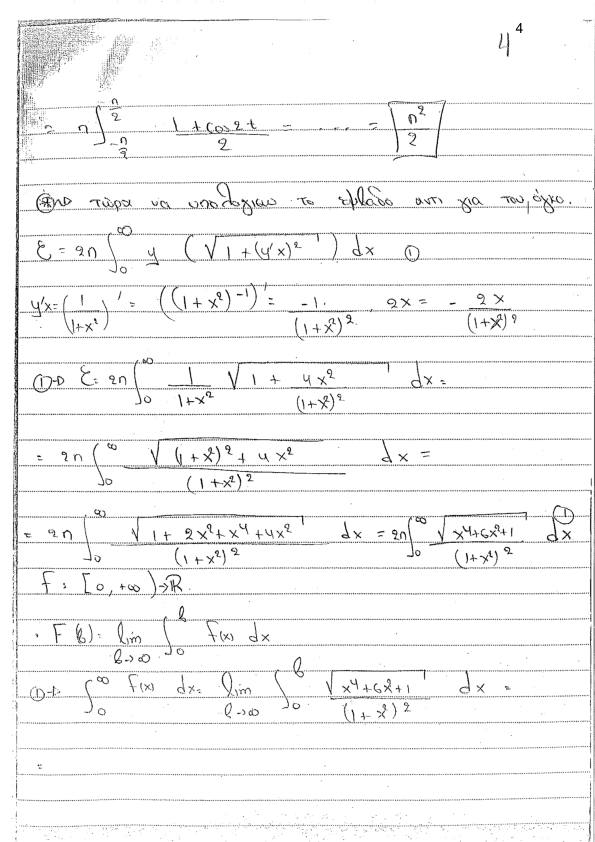 4 4
= π ∫_{-π/2}^{π/2} (1 + cos2t)/2 = .... = π²/2
τώρα να υπολογισω το εμβαδο αντι για τον όγκο.
ℰ = 2π ∫_0^∞ y (√(1 + (y'x)²)) dx ①
y'x = (1/(1+x²))' = ((1+x²)^{-1})' = -1·/(1+x²)² · 2x = - 2x/(1+x²)²
①→ ℰ = 2π ∫_0^∞ 1/(1+x²) √(1 + 4x²/(1+x²)²) dx =
= 2π ∫_0^∞ √((1+x²)² + 4x²)/(1+x²)² dx =
= 2π ∫_0^∞ √(1 + 2x² + x⁴ + 4x²)/(1+x²)² dx = 2π ∫_0^∞ √(x⁴+6x²+1)/(1+x²)² dx ①
f : [0, +∞) → ℝ
· F(b) = lim_{b→∞} ∫_0^b f(x) dx
①→ ∫_0^∞ f(x) dx = lim_{b→∞} ∫_0^b √(x⁴+6x²+1)/(1+x²)² dx =
=